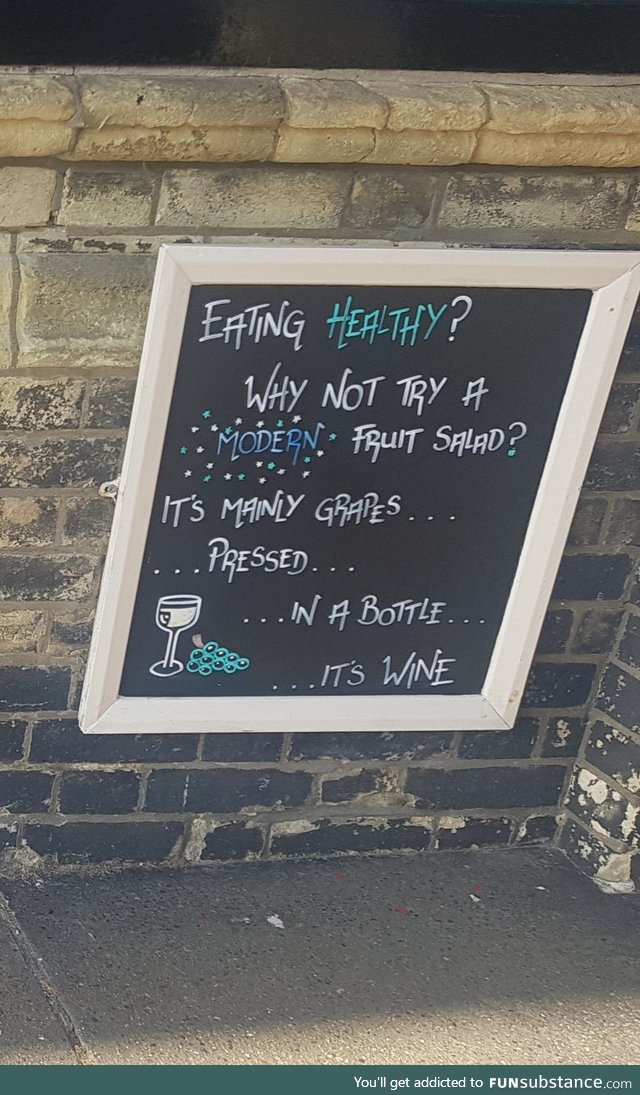 EATING HEALTHY?
WHY NOT TRY A
MODERN FRUIT SALAD?
IT'S MAINLY GRAPES...
...PRESSED...
...IN A BOTTLE...
...IT'S WINE
You'll get addicted to FUNsubstance.com